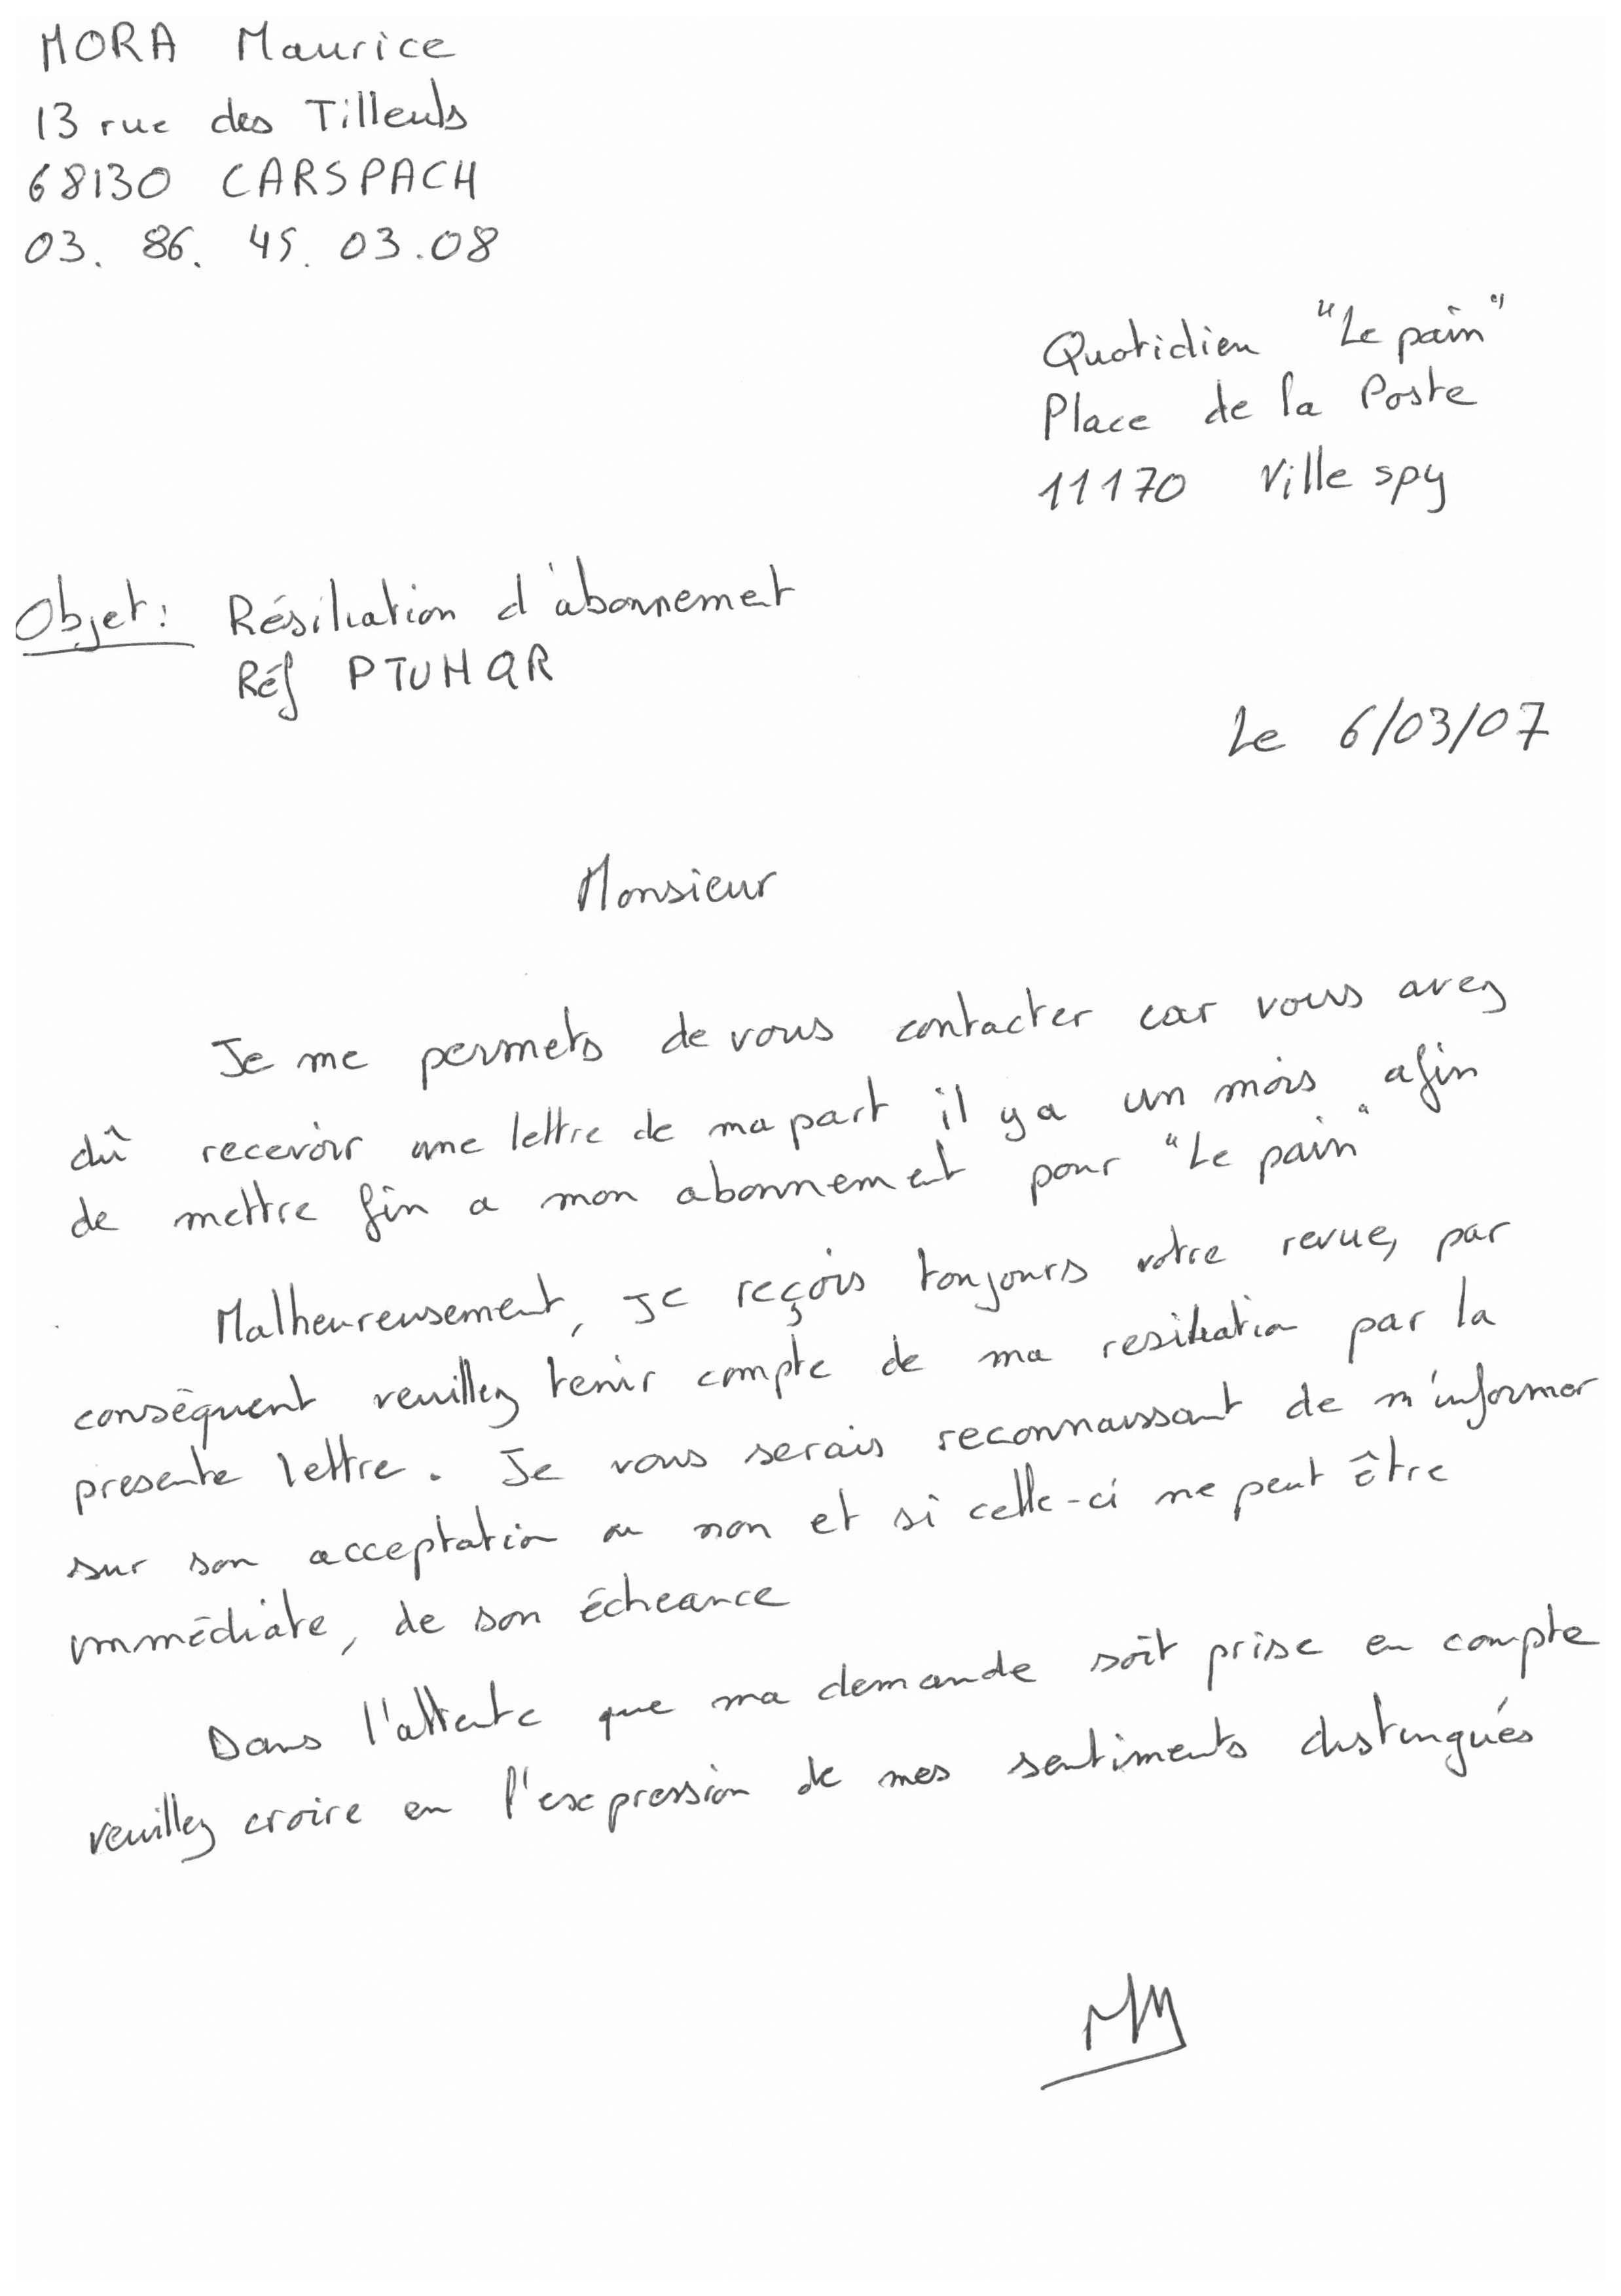 MORA Maurice
13 rue des Tilleuls
68130 CARSPACH
03. 86. 45. 03.08
Quotidien "Le pain"
Place de la Poste
11170 Ville spy
Objet: Résiliation d'abonnement
Réf PTUHQR
Le 6/03/07
Monsieur
Je me permets de vous contacter car vous avez
dû recevoir une lettre de ma part il y a un mois afin
de mettre fin a mon abonnement pour "Le pain"
Malheureusement, je reçois toujours votre revue, par
conséquent veuillez tenir compte de ma resiliation par la
presente lettre. Je vous serais reconnaissant de m'informer
sur son acceptation ou non et si celle-ci ne peut être
immédiate, de son écheance
Dans l'attente que ma demande soit prise en compte
veuillez croire en l'expression de mes sentiments distingués
MM